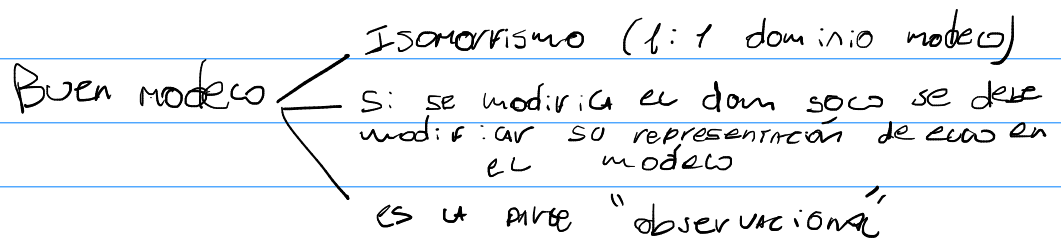 Isomorfismo (1:1 dominio modelo)
Buen modelo
Si se modifica el dom solo se debe
modificar su representación de ello en
el modelo
es la parte "observacional"